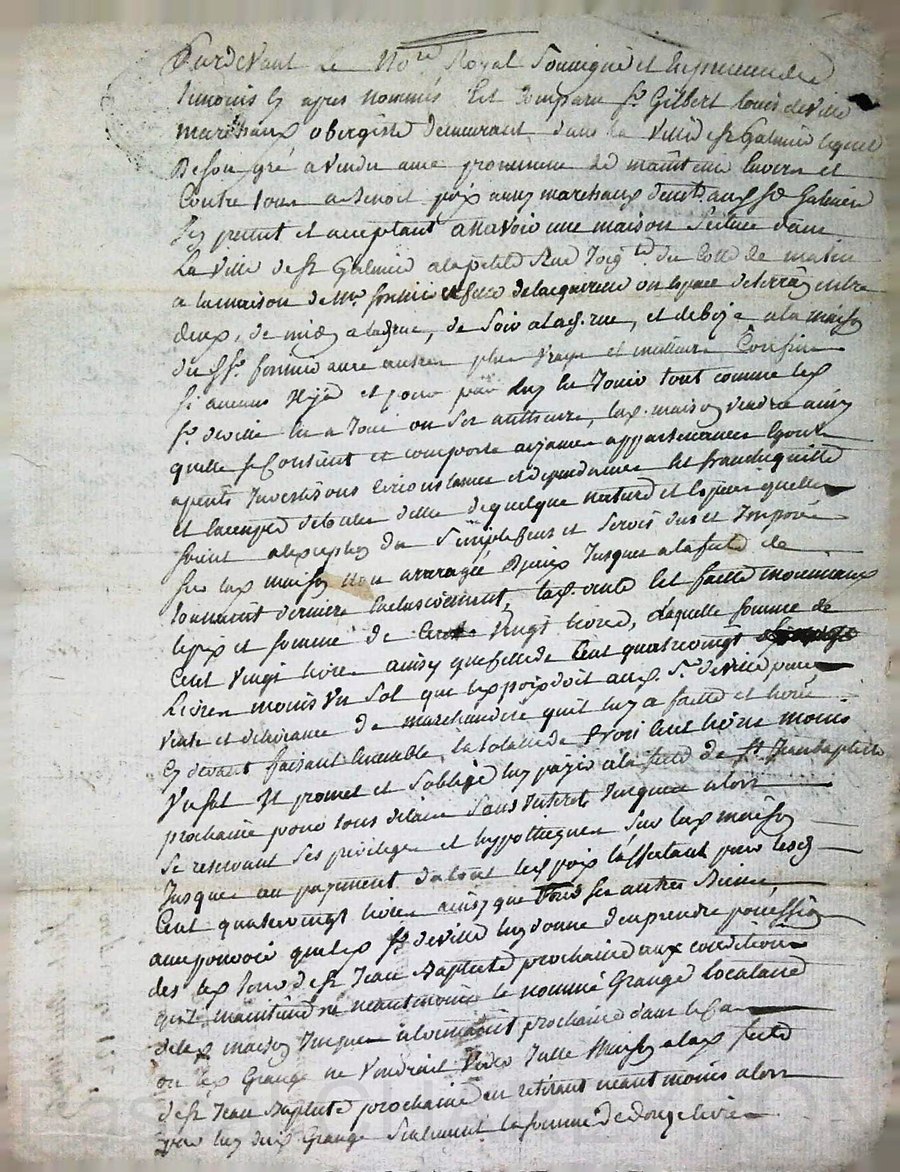 Pardevant le No.re Royal Soussigné et en presence des
temoins cy apres nommés Est comparu Sr Gilbert Louis deville
marchand obergiste demeurant dans la ville St Galmier lequel
de son gré a vendu avec promesse de maintenir envers et
contre tous a Benoit poix aussy marchand demt audt St Galmier
icy present et acceptant assavoir une maison scituée dans
la ville de St Galmier a la petite Rue du cotté de matin
a la maison de Mr un espace de terrain entre
deux, de midy a lad. rue, de soir a lad. rue, et de bize a la maison
du avec autres plus vrays et meilleurs confins
si aucuns n'y a et pour par luy en jouir tout comme led
Sr deville en a joui ou ses autheurs, lad. maison vendue ainsy
quelle se consent et comporte aizances appartenances
circonstances et dependances et franche quitte
et exempte de toutes dettes de quelque nature et espece quelles
soient a l'exception du simple cens et servis dus et imposés
sur lad maison non arreragés depuis jusques a la fete de
toussaint derniere exclusivement, lad. vente est faitte moyennant
le prix et somme de Cent vingt livres, laquelle somme de
Cent vingt livres ainsy que celle de Cent quatre vingt
livres moins un sol que led poix doit aud Sr deville pour
vente et delivrance de marchandise quil luy a faitte et livré
cy devant faisant ensemble la totale de trois cent livres moins
un sol Il promet et s'oblige luy payer a la fete de St Jean baptiste
prochaine pour tous delais sans interets jusques alors
se reservant ses privileges et hypotheques sur lad maison
jusques au payment led poix affectant pour lesd
Cent quatre vingt livres ainsy que tous ses autres biens,
avec pouvoir que led Sr deville luy donne d'en prendre possession
des led jour de St Jean Baptiste prochaine aux conditions
quil maintiendra neantmoins le nommé Grange locataire
de lad maison jusques a la toussaint prochaine dans le cas
ou led Grange ne voudrait vider icelle maison a lad fete
de St Jean Baptiste prochaine en retirant neantmoins alors
par luy dud Grange seulement la somme de douze livres